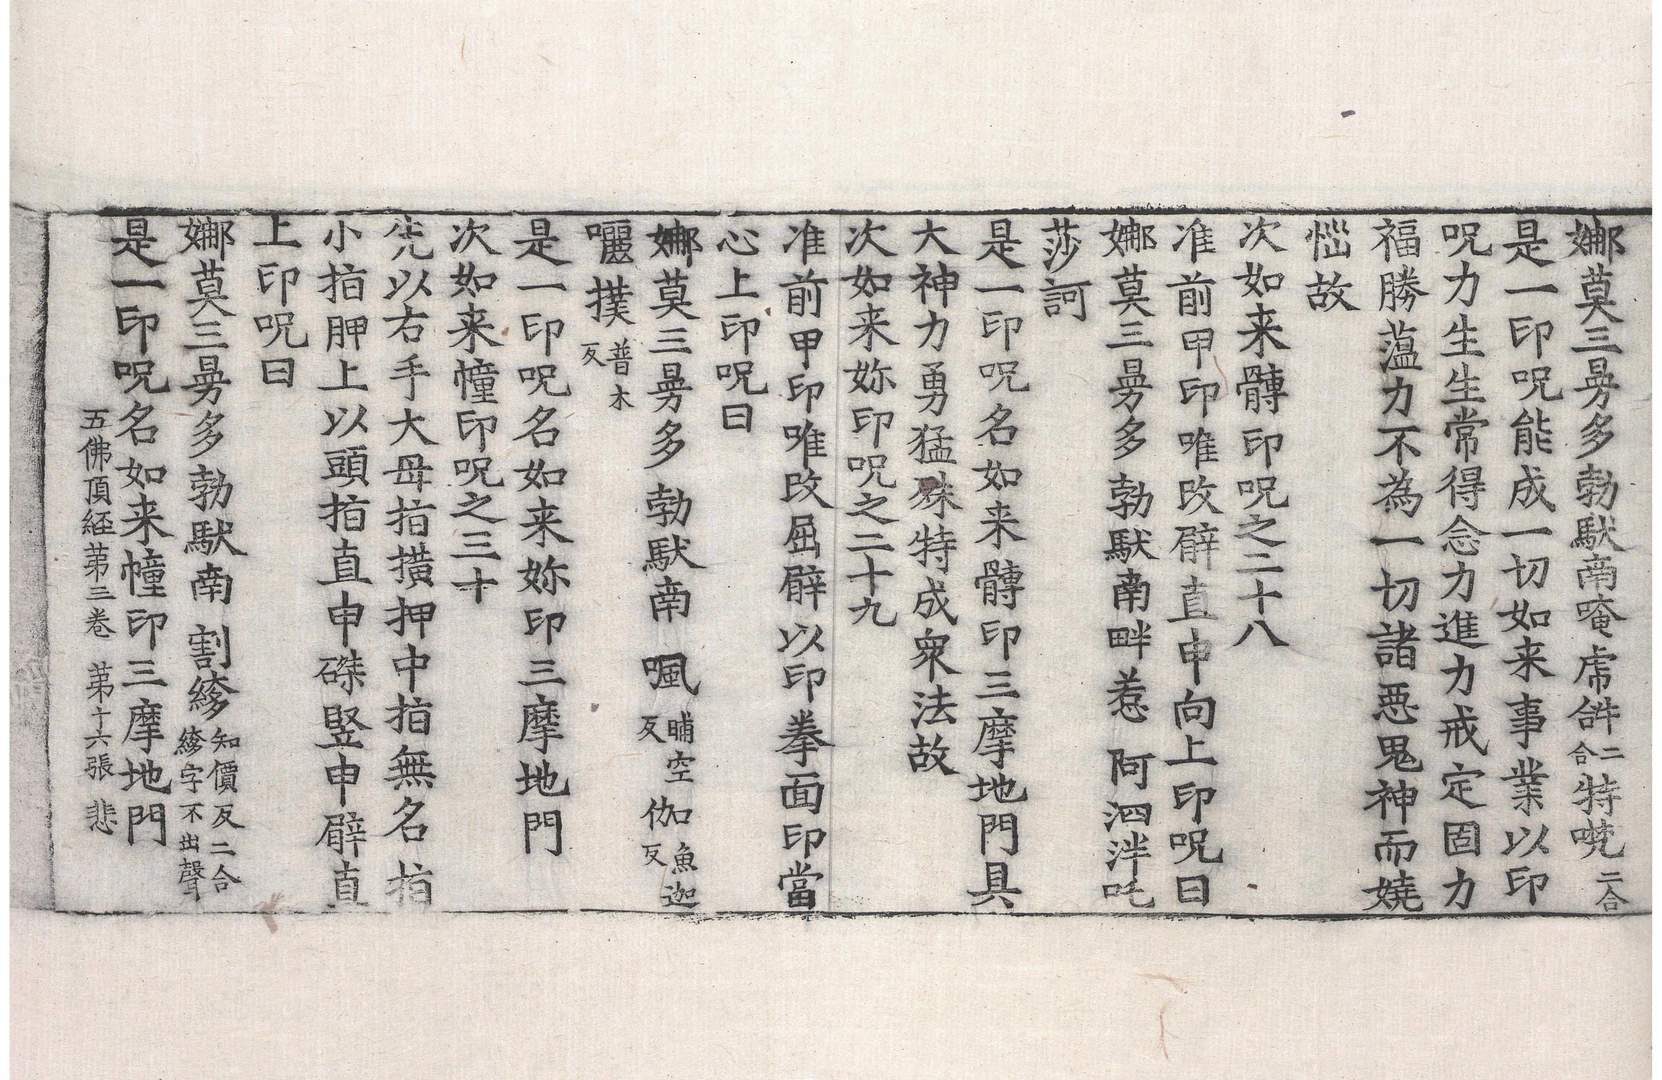 娜莫三曼多勃馱南唵虎𤙖二合特㘕二合
是一印呪能成一切如来事業以印
呪力生生常得念力進力戒定固力
福勝薀力不為一切諸惡鬼神而嬈
惱故
次如来髆印呪之二十八
准前甲印唯改臂直申向上印呪曰
娜莫三曼多勃馱南畔惹 阿泗泮吒
莎訶
是一印呪名如来髆印三摩地門具
大神力勇猛殊特成衆法故
次如来妳印呪之二十九
准前甲印唯改屈臂以印拳面印當
心上印呪曰
娜莫三曼多勃馱南 㗢晡空反伽魚迦反
囇撲普木反
是一印呪名如来妳印三摩地門
次如来幢印呪之三十
先以右手大母指撗押中指無名指
小指胛上以頭指直申磔竪申臂直
上印呪曰
娜莫三曼多勃馱南 割縿知價反二合縿字不出聲
是一印呪名如来幢印三摩地門
五佛頂経苐三卷 苐十六張 悲